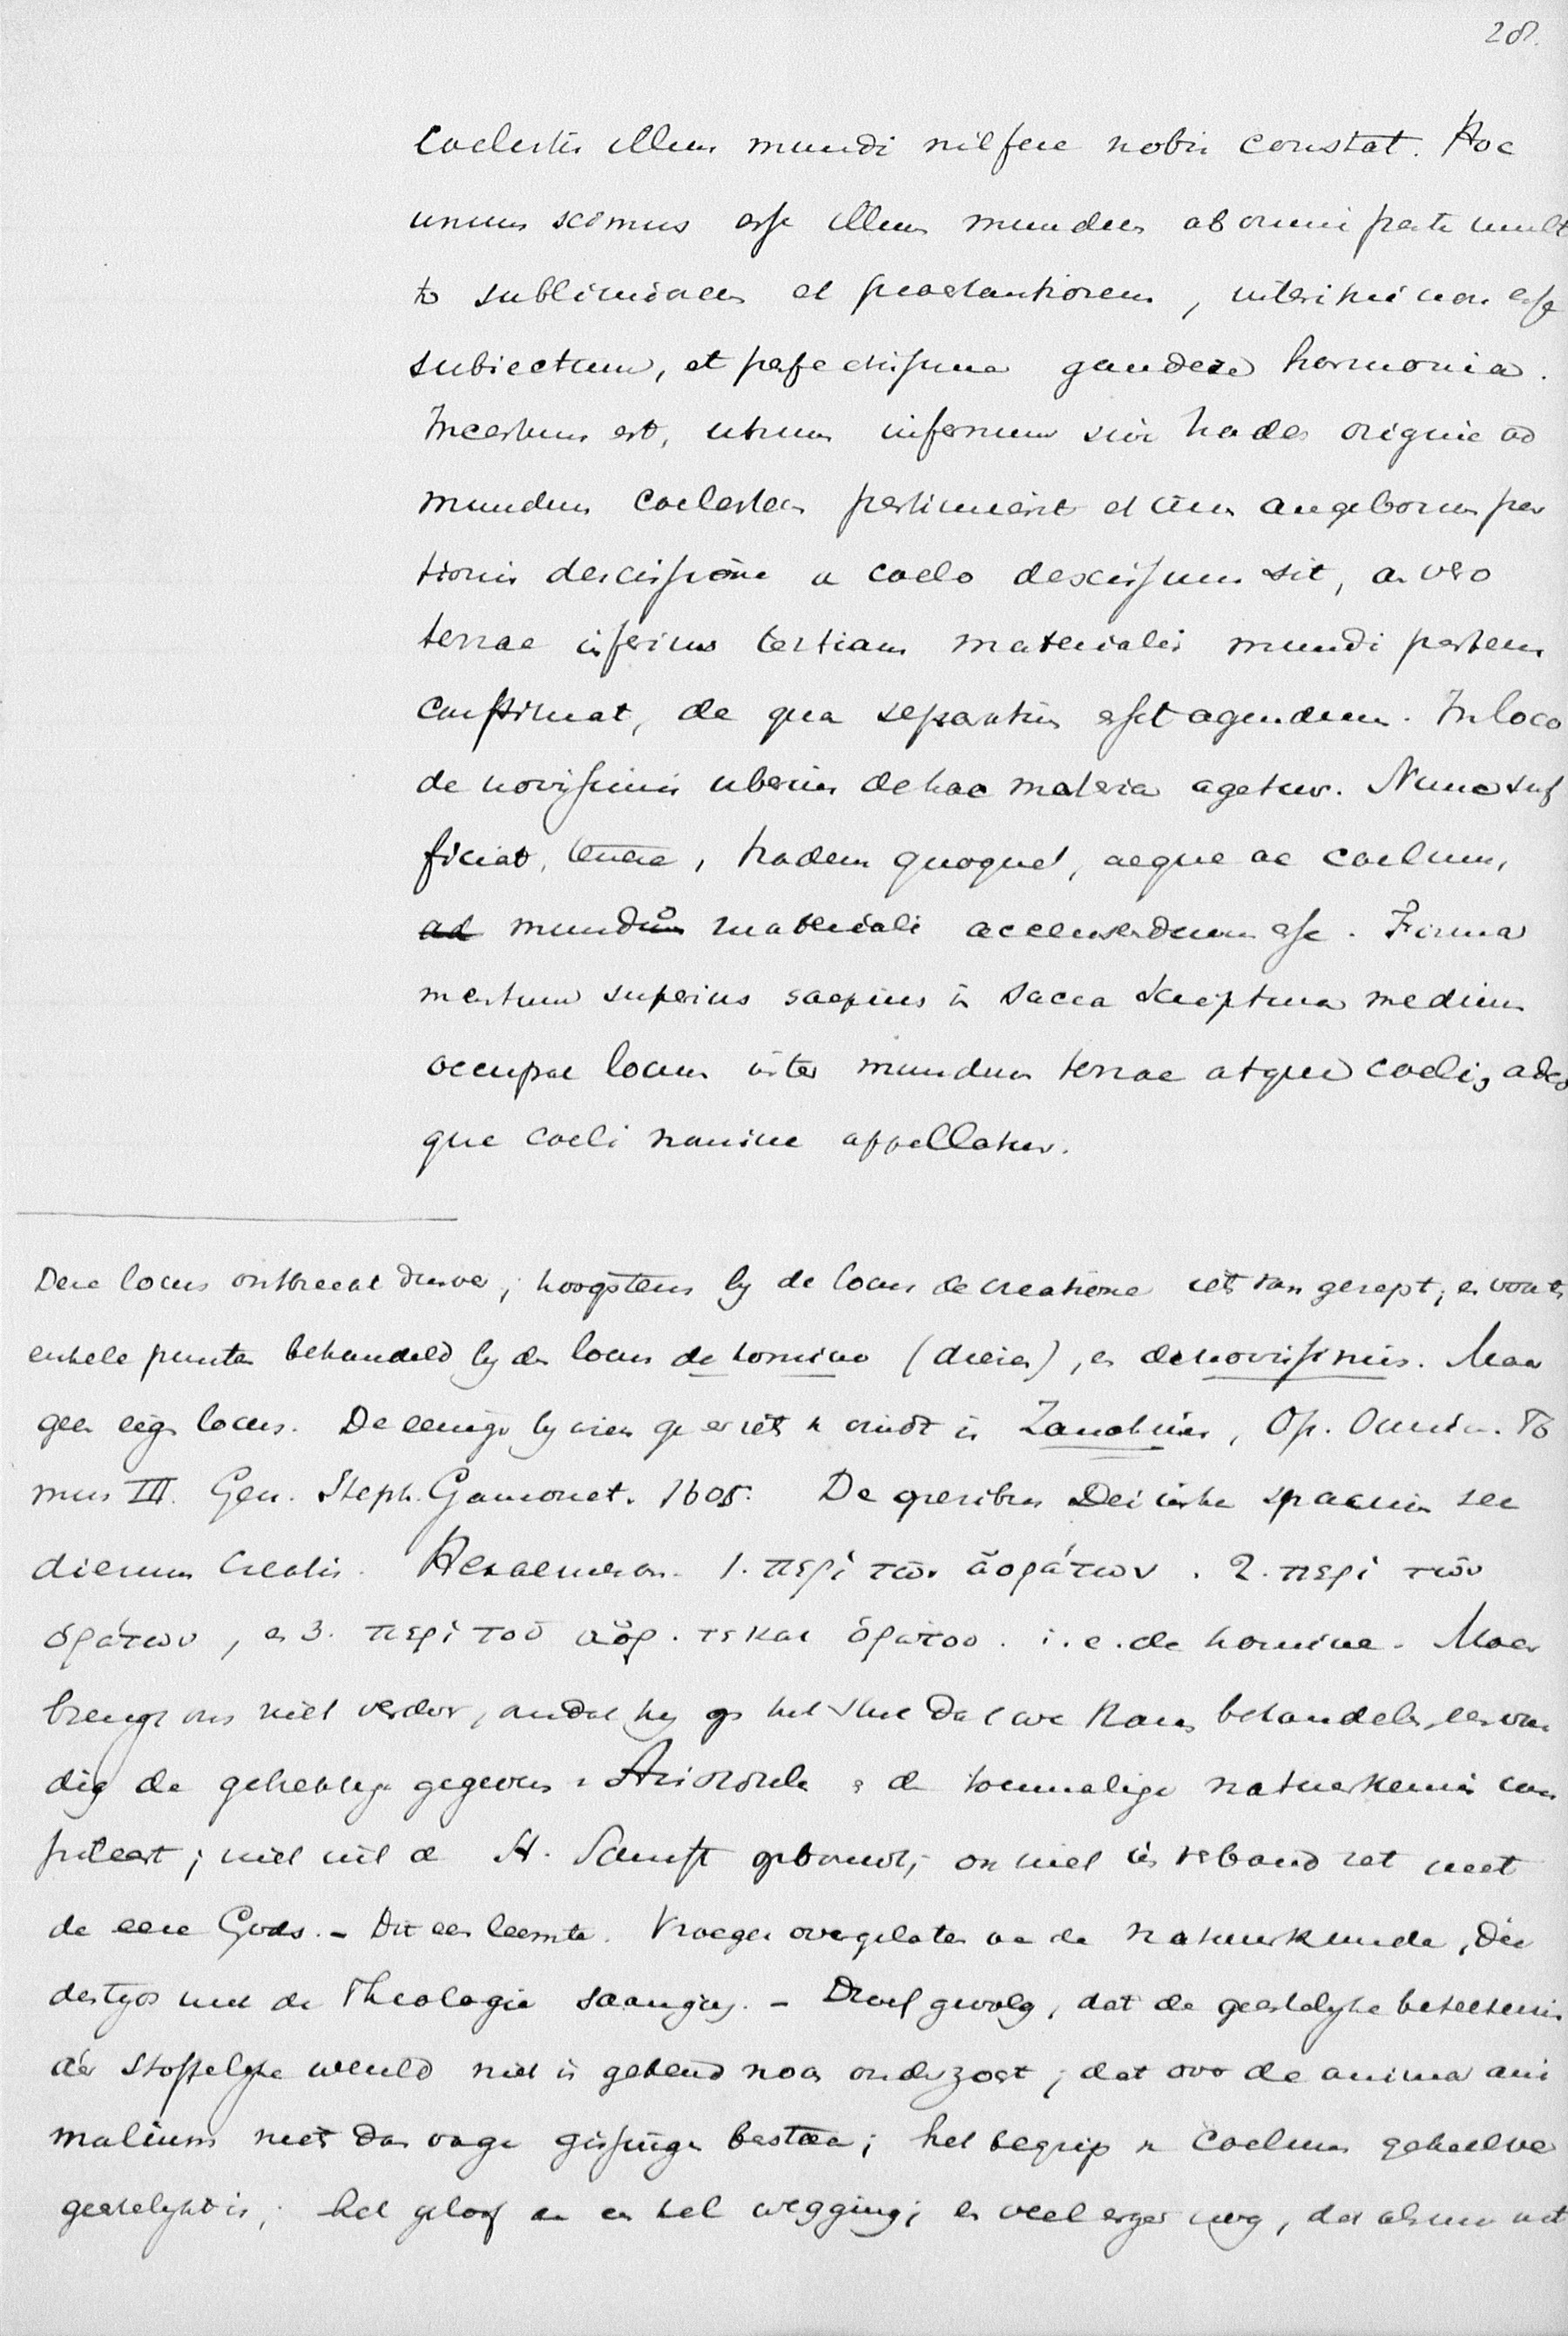 28.
Coelestis illius mundi nil fere nobis constat. Hoc
unum scimus esse illum mundum ab omni parte mul
to sublimiorem et praestantiorem, interitui non esse
subiectum, et perfectissima gaudere harmonia.
Incertum est, utrum infernum sive hades origine ad
mundum coelestem pertinuerit et cum angelorum per
tionis descissione a coelo descissum sit, an vero
terrae inferius tertiam materialis mundi partem
constituat, de qua separatim esset agendum. In loco
de novissimis uberius de hac materia agetur. Nunc suf
ficiat, tenere, hadem quoque, aeque ac coelum,
ad mundo materiali accensendum esse. Firma
mentum superius saepius in Sacra Scriptura medium
occupat locum inter mundum terrae atque coeli, adeo
que coeli nomine appellatur.
Deze locus ontbreekt dusver; hoogstens by de locus de creatione iets van gerept; en voorts
enkele punten behandeld by den locus de homine (dieren), en de novissimis. Maar
geen eigen locus. De eenige by wien ge er iets v. vindt is Zanchius, Op. Omnia. To
mus III. Gen. Steph. Gamonet. 1605. De operibus Dei intra spacium sex
dierum creatis. Hexaemeron. 1. περὶ τῶν ἀοράτων. 2. περὶ τῶν
ὁράτων, en 3. περὶ τοῦ ἀορ. τε και ὁράτου. i.e. de homine. Maar
brengt ons niet verder, omdat hy op het stuk dat we thans behandelen, eenvou
dig de gehechtige gegevens v. Aristotele en de toenmalige natuurkennis com
pileert; niet uit de H. Schrift gebouwd; en niet in verband zet met
de eere Gods. - Dit een leemte. Vroeger overgelaten aan de natuurkunde, die
destyds met de Theologie saamging. - Droef gevolg, dat de geestelyke beteekenis
der stoffelyke wereld niet is gekend noch onderzocht; dat over de anima ani
malium niets dan vage gissingen bestaan; het begrip v. coelum geheel ver
geestelykt is; het geloof aan een hel wegging; en veel erger nog, dat als men uit